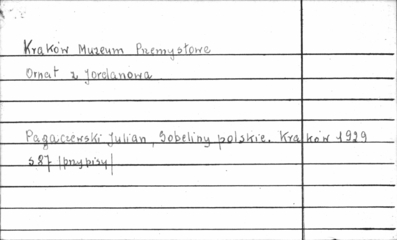 Kraków Muzeum Przemysłowe
Ornat z Jordanowa
Pagaczewski Julian, Gobeliny polskie. Kraków 1929
s.87 /przypisy/